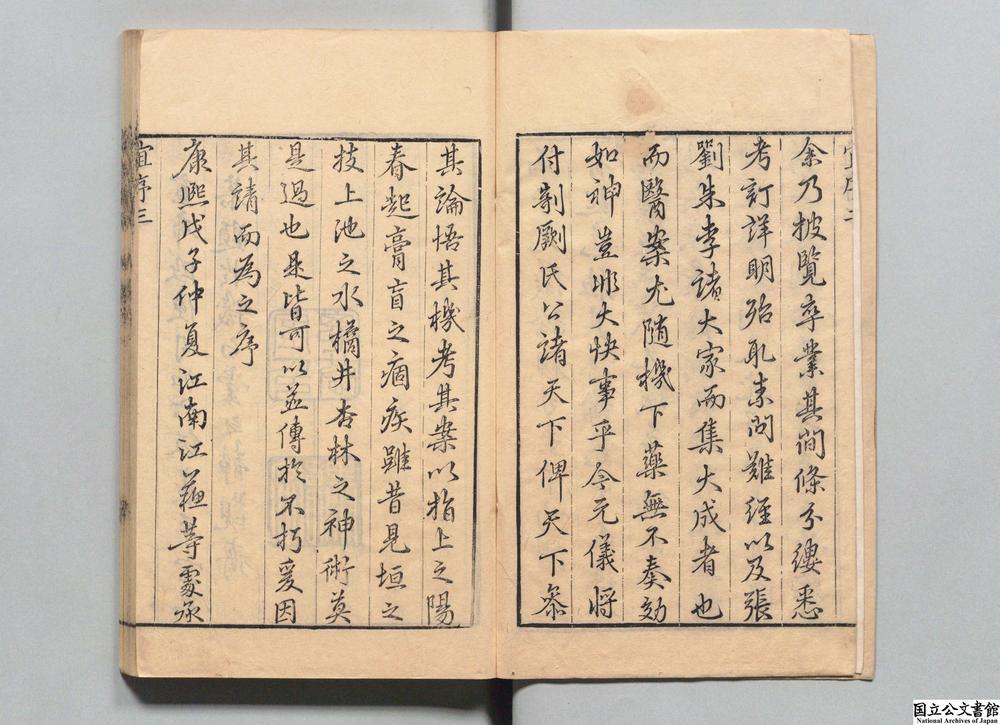 余乃披覽卒業其間條分縷悉
考訂詳明殆取素問難經以及張
劉朱李諸大家而集大成者也
而醫案尤隨機下藥無不奏効
如神豈非大快事乎今元儀將
付剞劂氏公諸天下俾天下叅
其論悟其機考其案以指上之陽
春起膏肓之痼疾雖昔見垣之
技上池之水橘井杏林之神術莫
是過也是皆可以並傳於不朽爰因
其請而為之序
康熙戊子仲夏江南江蘇等處承
宜序三
国立公文書館
National Archives of Japan